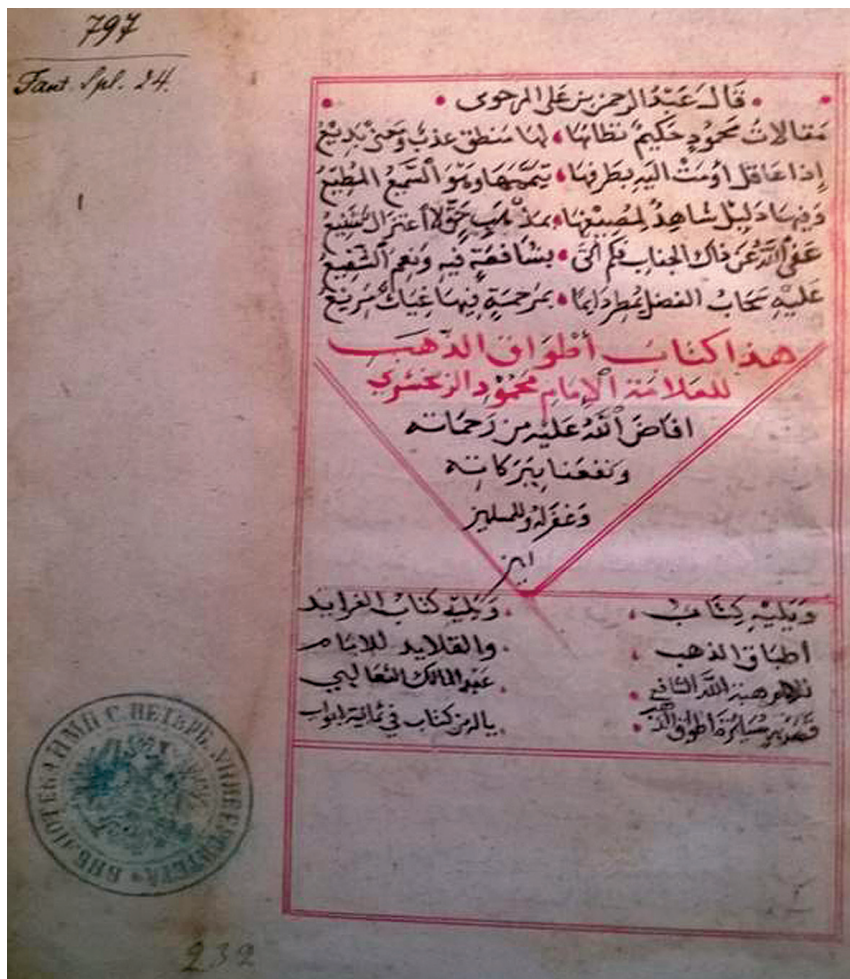 797
Tant. Spl. 24.
قال عبد الرحمن بن على المرحوى
مقالات محمود حكيم نظامها • لها منطق عذب وحسن بديع
إذا عاقل أومت اليه بطرفها • وهو السميع المطيع
وفيها دليل شاهد
عفى الله عن ذاك الجناب فكم اتى • بشافعة فيه ونعم الشفيع
عليه سحاب الفضل يمطر دايما • بمرحمة فيها غياث سريع
هذا كتاب أطواق الذهب
للعلامة الإمام محمود الزمخشري
افاض الله عليه من رحماته
ونفعنا ببركاته
وغفر له وللمسلمين
امين
ويليه كتاب
أطباق الذهب
للامام هبة الله الشافعي
أطواق الذهب
ويليه كتاب الفرايد
والقلايد للامام
عبد المالك الثعالبي
كتاب في ثمانية ابواب
БИБЛІОТЕКА ИМП. С. ПЕТЕРБ. УНИВЕРСИТЕТА
232